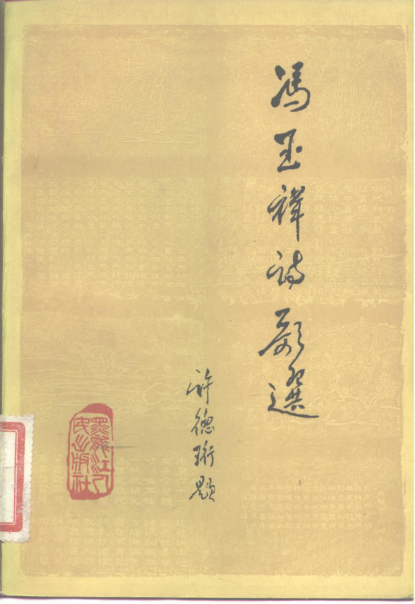 冯玉祥诗歌選
许德珩题
黑龙江人
民出版社